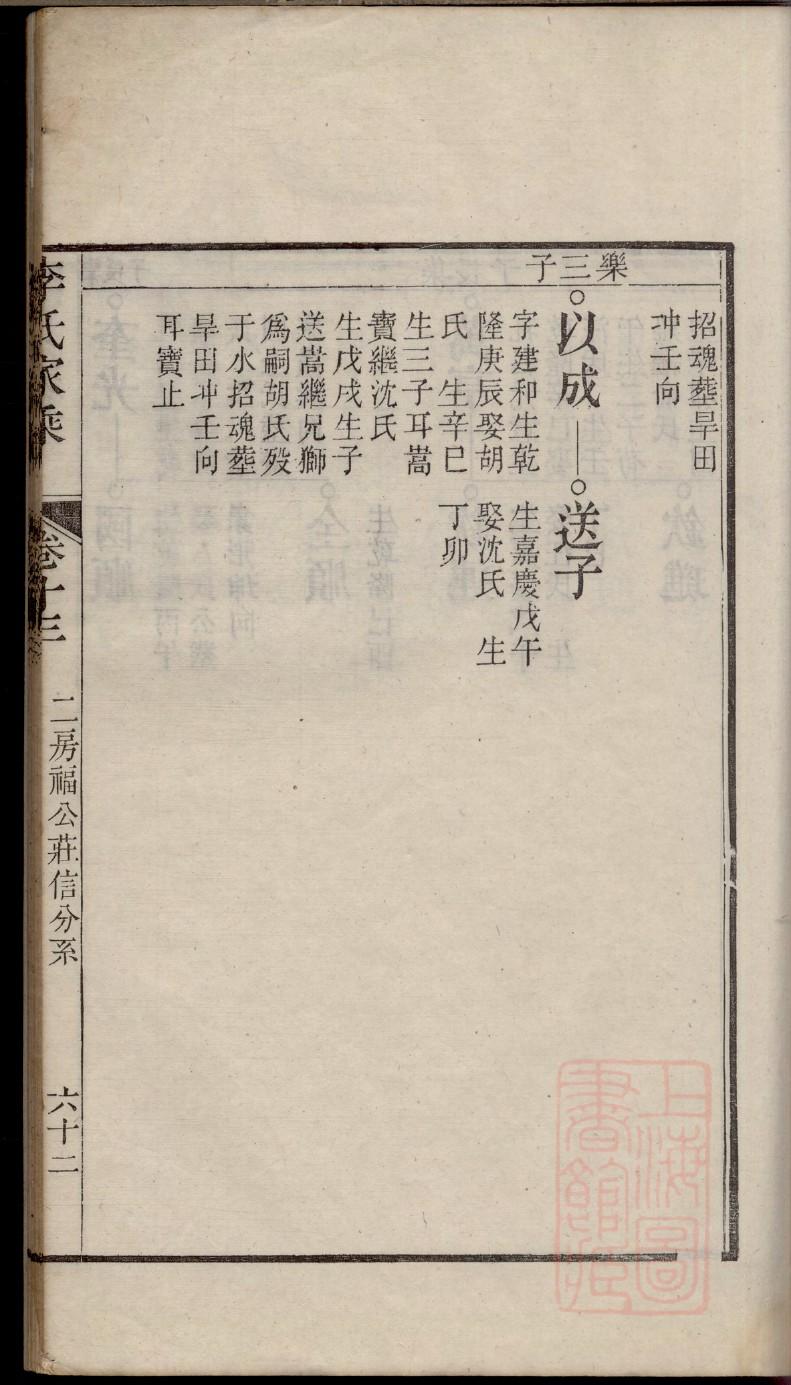 招魂塟旱田
冲壬向
樂三子
以成
送子
字建和生乾
隆庚辰娶胡
氏　生辛巳
生三子耳嵩
寶繼沈氏
生戊戌生子
送嵩繼兄獅
爲嗣胡氏殁
于水招魂塟
旱田冲壬向
耳寶止
生嘉慶戊午
娶沈氏　生
丁卯
李氏家乘
卷十三
二房福公莊信分系
六十二
上海圖
書館藏